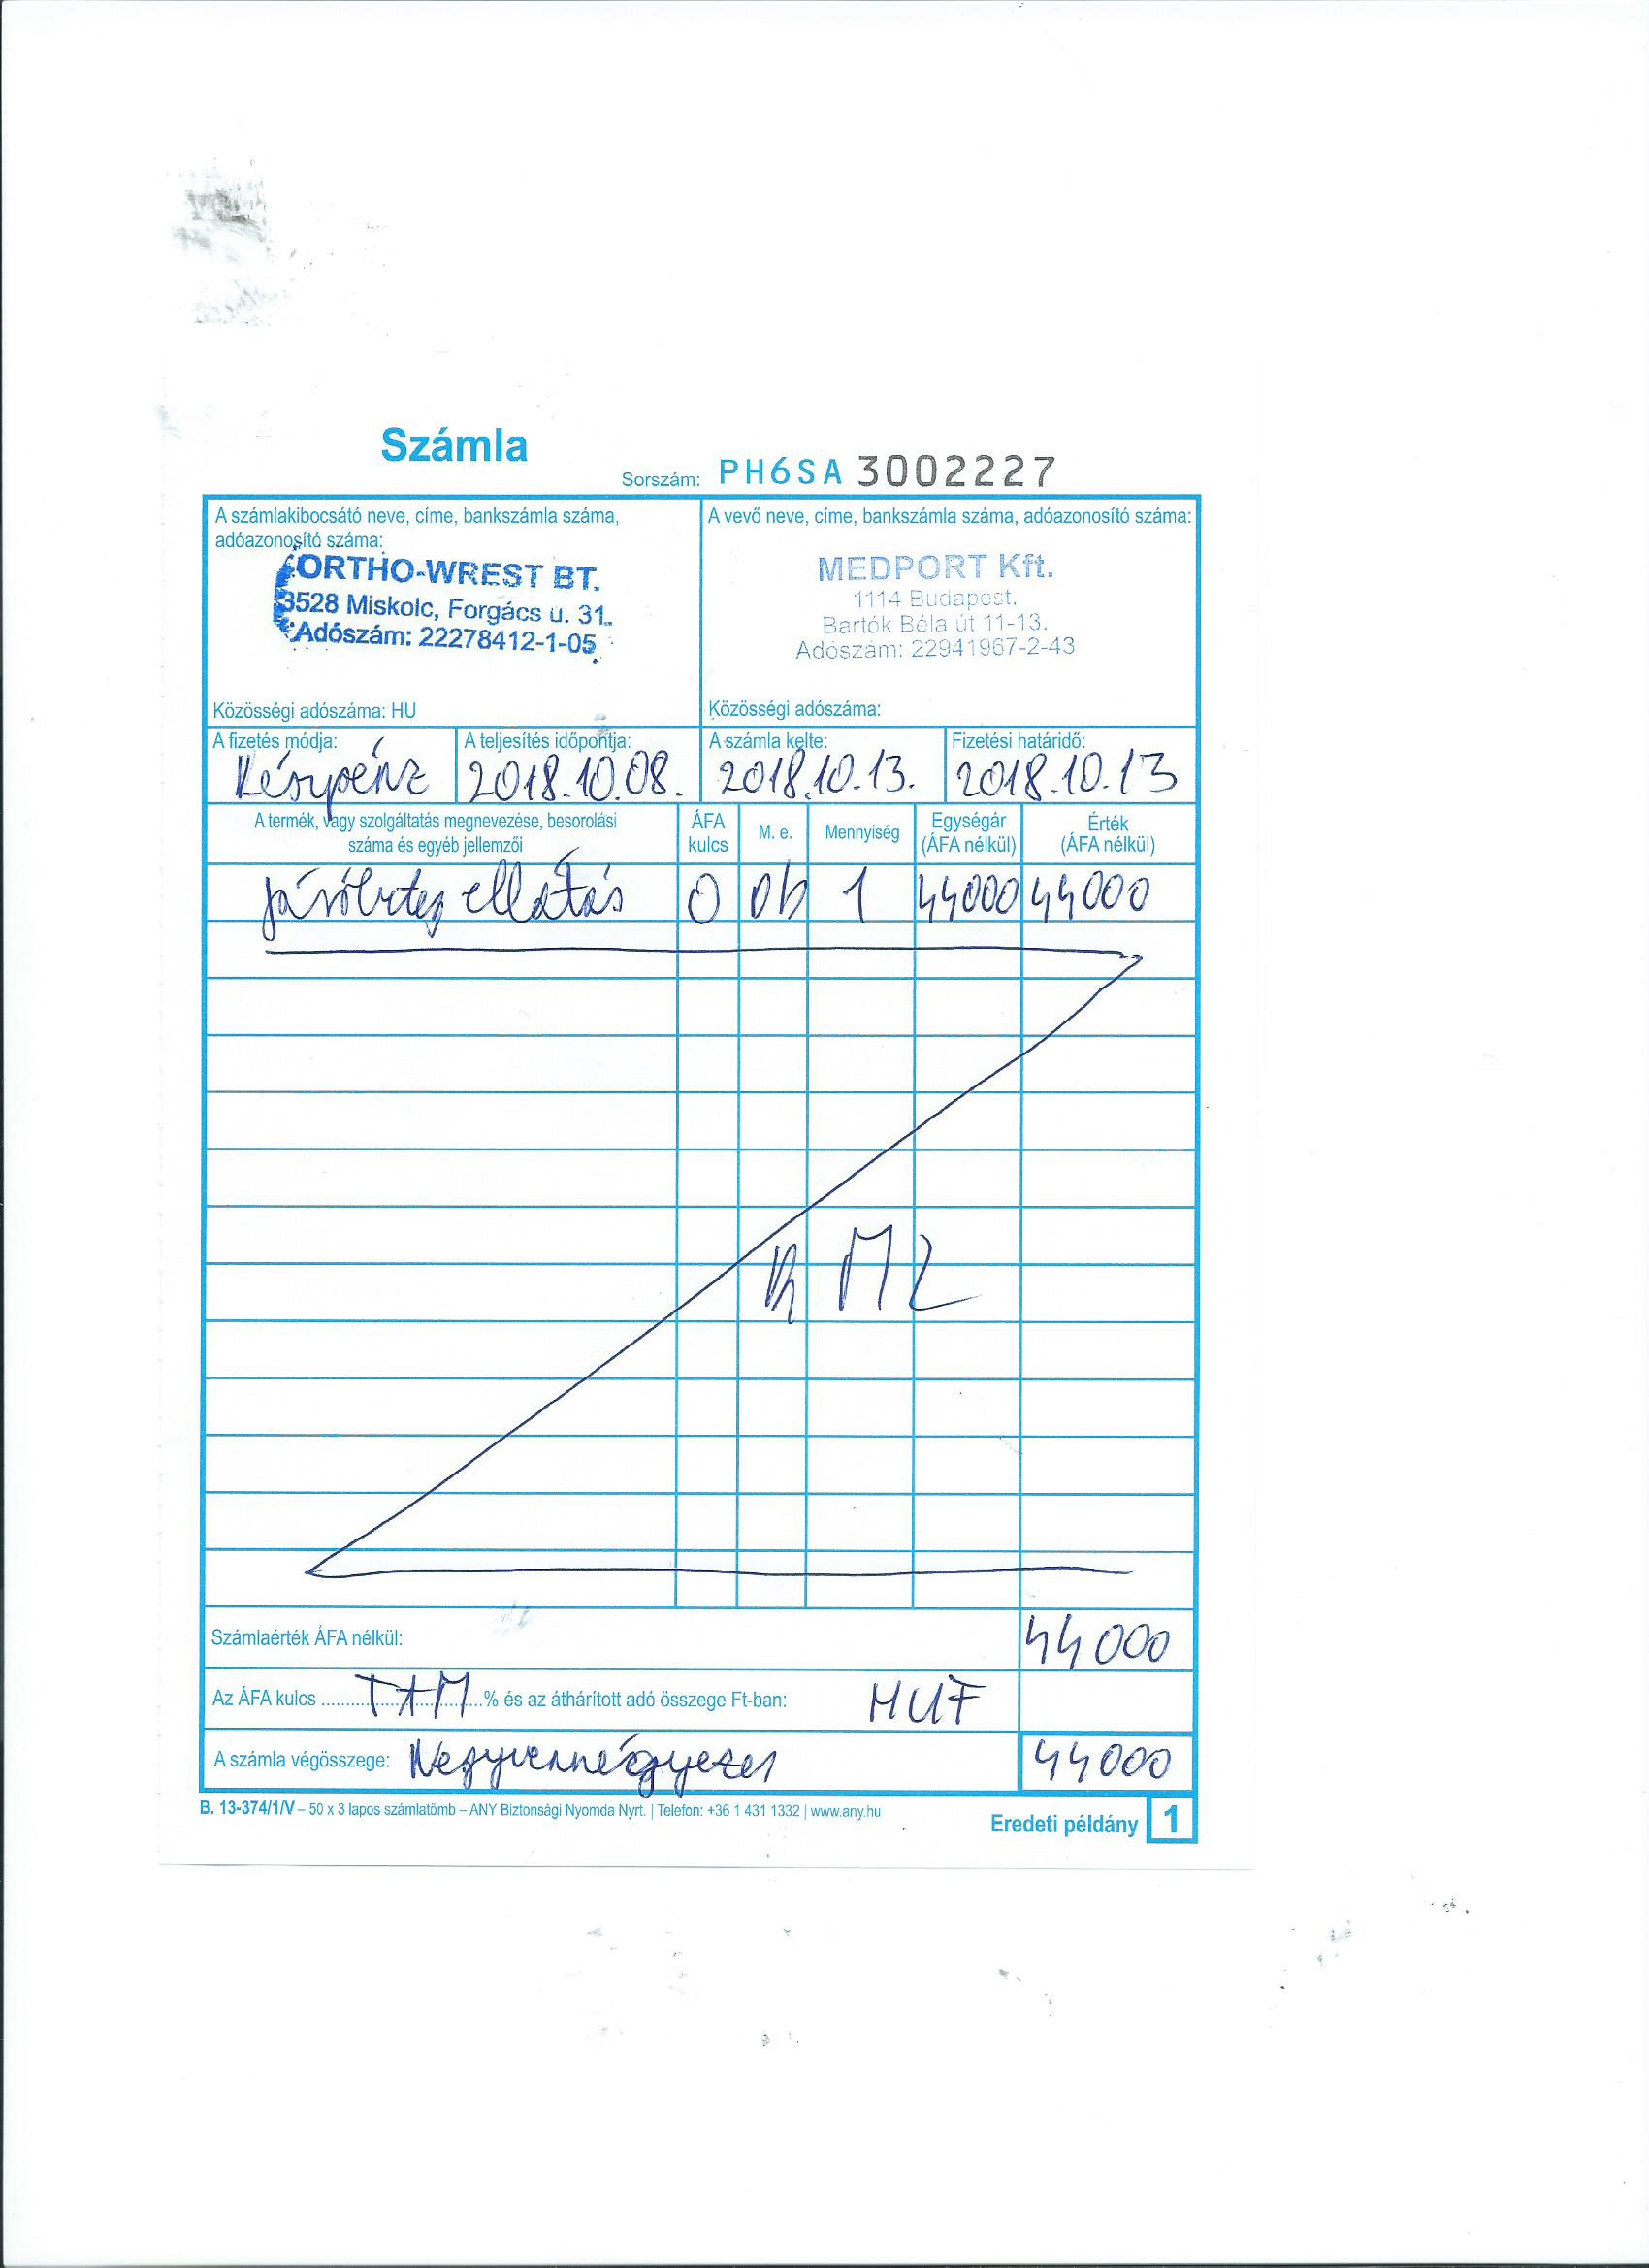 Számla
Sorszám: PH6SA 3002227
A számlakibocsátó neve, címe, bankszámla száma,
adóazonosító száma:
ORTHO-WREST BT.
3528 Miskolc, Forgács u. 31.
Adószám: 22278412-1-05
Közösségi adószáma: HU
A vevő neve, címe, bankszámla száma, adóazonosító száma:
MEDPORT Kft.
1114 Budapest.
Bartók Béla út 11-13.
Adószám: 22941967-2-43
Közösségi adószáma:
A fizetés módja:
Készpénz
A teljesítés időpontja:
2018.10.08.
A számla kelte:
2018.10.13.
Fizetési határidő:
2018.10.13
A termék, vagy szolgáltatás megnevezése, besorolási
száma és egyéb jellemzői
ÁFA
kulcs
M. e.
Mennyiség
Egységár
(ÁFA nélkül)
Érték
(ÁFA nélkül)
járóbeteg ellátás 0 db 1 44000 44000
Számlaérték ÁFA nélkül: 44000
Az ÁFA kulcs TAM % és az áthárított adó összege Ft-ban: HUF
A számla végösszege: Negyvennégyezer 44000
B. 13-374/1/V – 50 x 3 lapos számlatömb – ANY Biztonsági Nyomda Nyrt. | Telefon: +36 1 431 1332 | www.any.hu
Eredeti példány 1